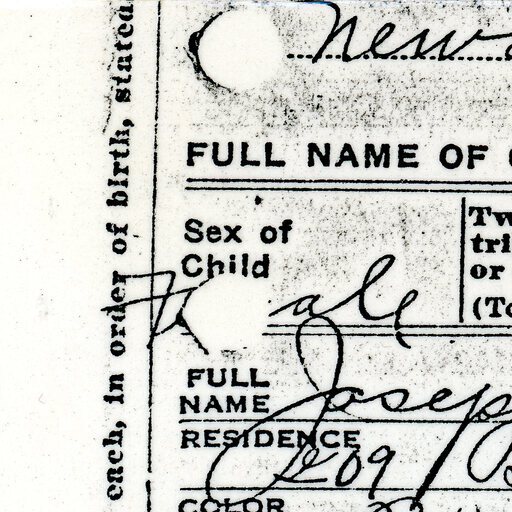 each, in order of birth, stated
FULL NAME OF
Sex of
Child
ale
Tw
tri
or
(To
FULL
NAME
Josep
RESIDENCE
209
COLOR